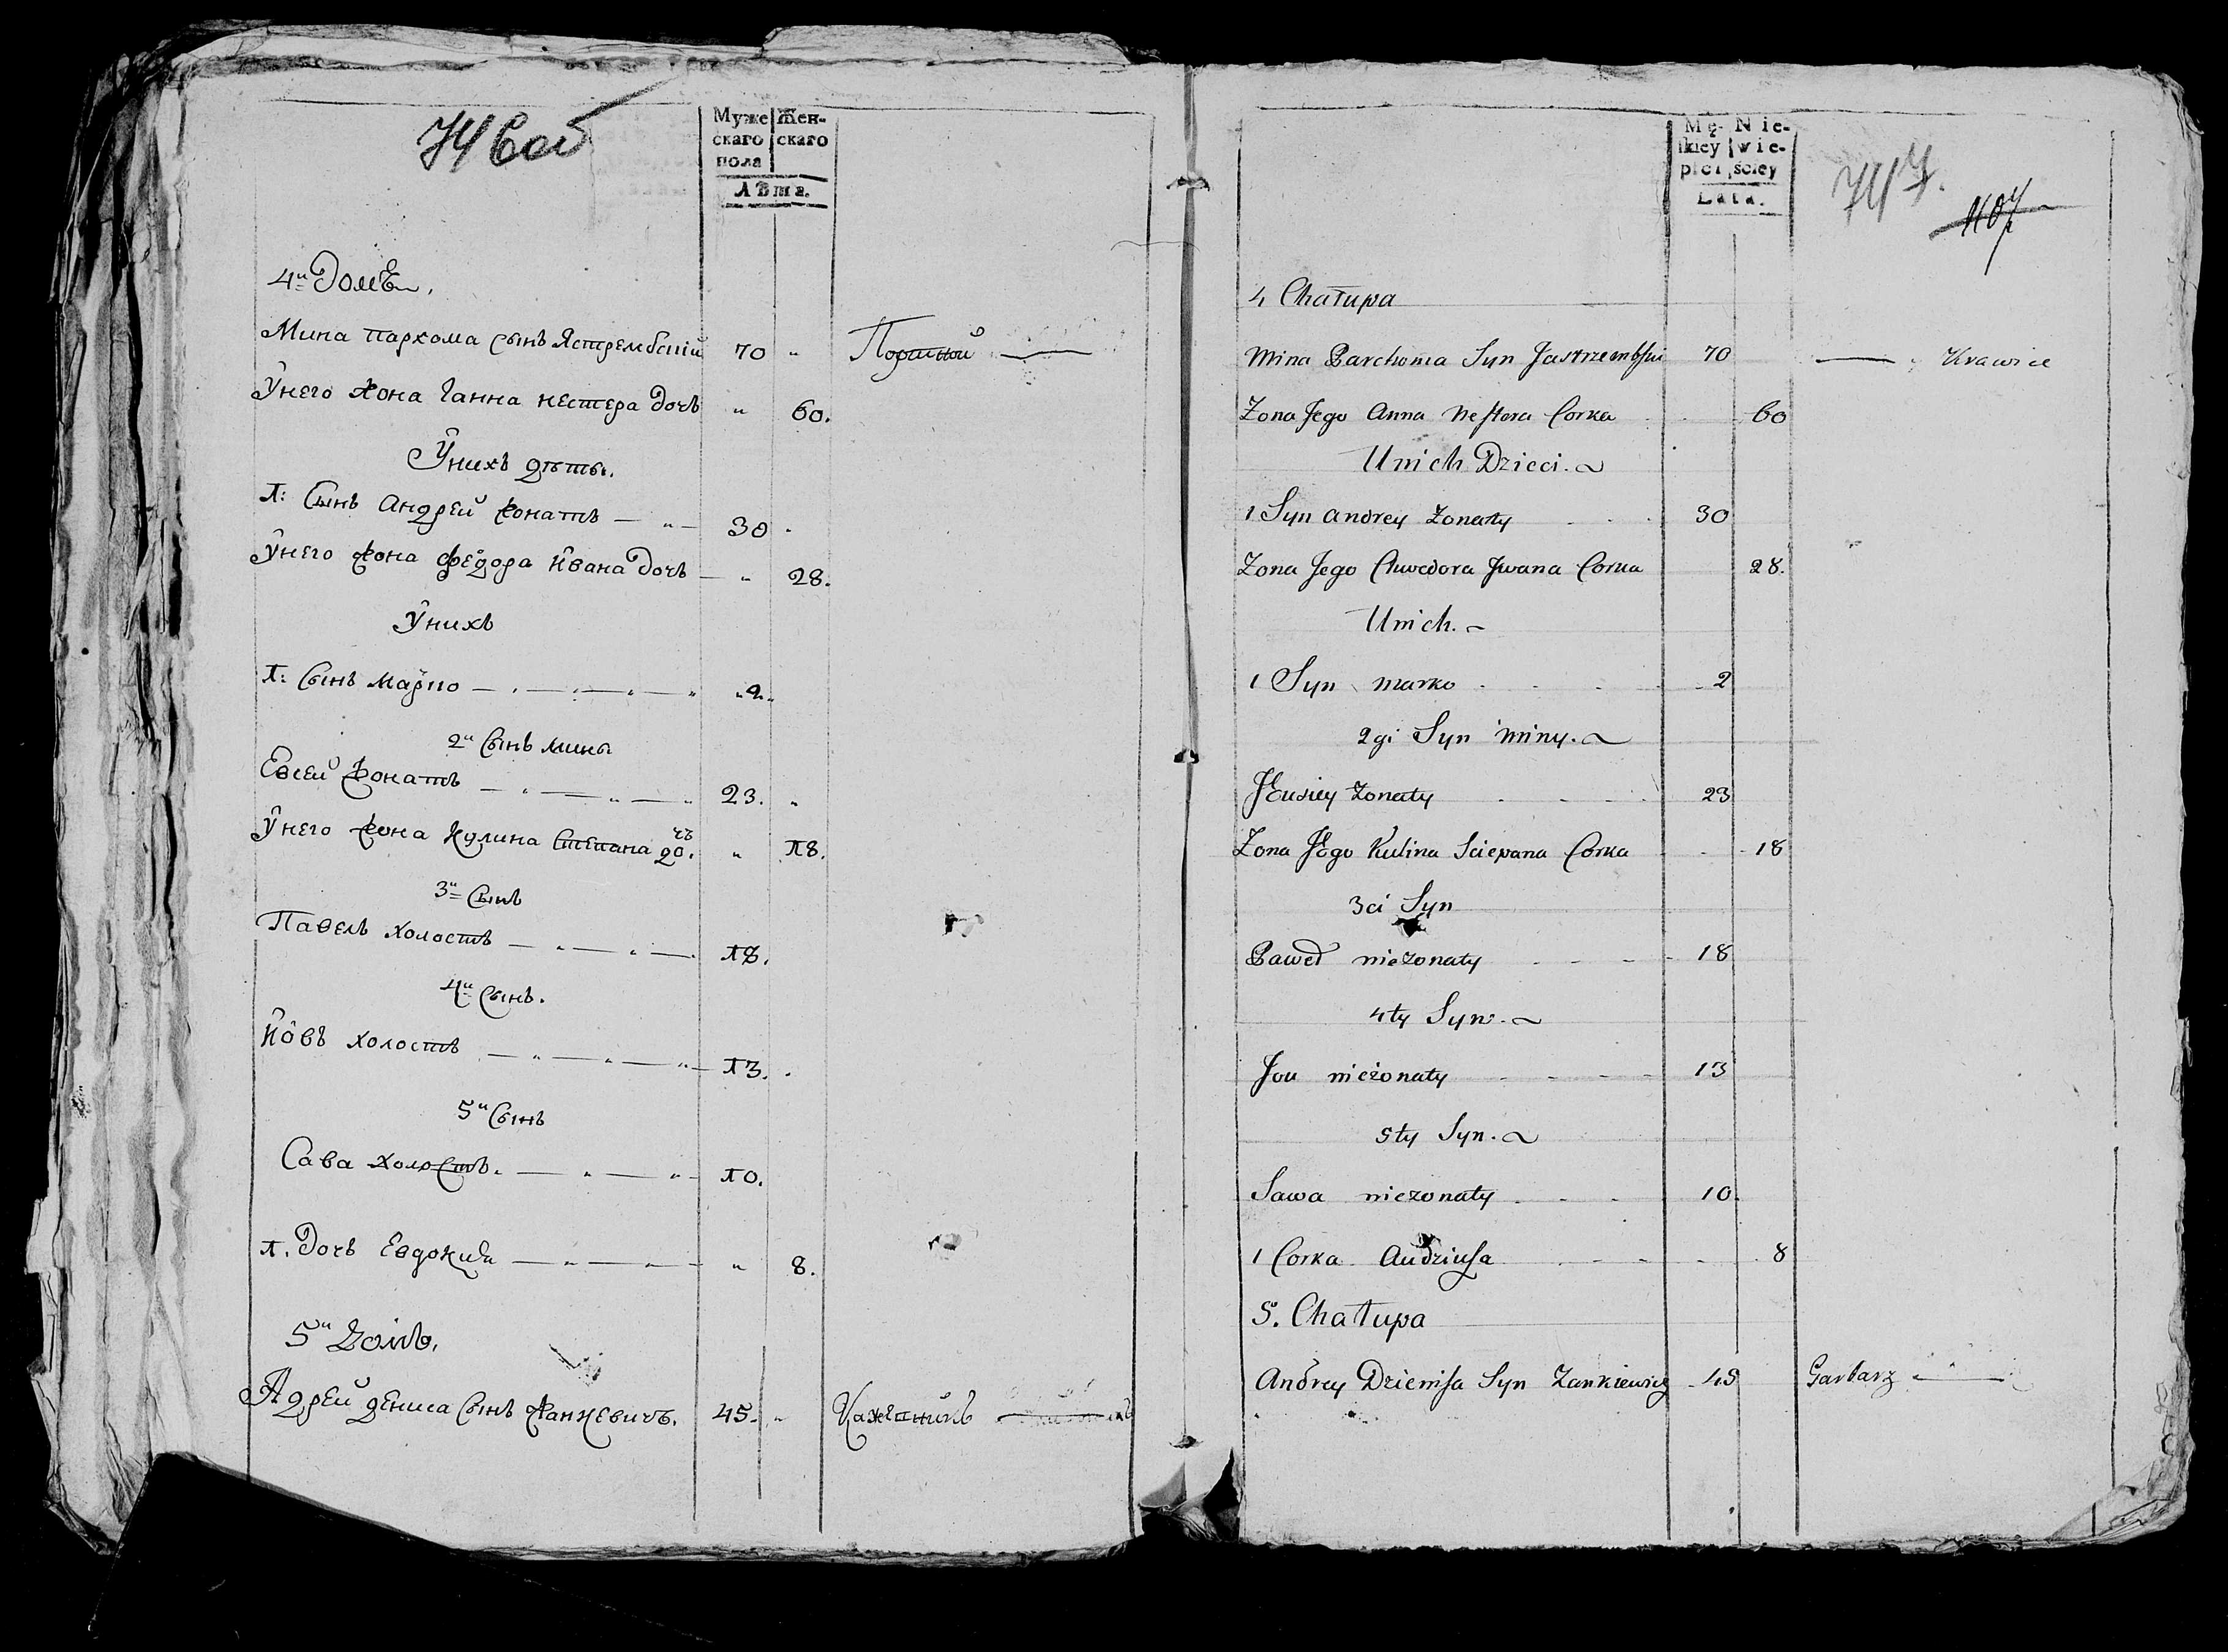 746 об
Муже
скаго
пола
Жен-
скаго
Лѣта.
4й Домъ.
Мина пархома сынъ Ястрембскій 70 „ Портной
Унего жона Ганна нестера дочь „ 60.
Унихъ дѣты.
1: Сынъ Андрей жонатъ 30
Унего жона федора Ивана дочь „ 28.
Унихъ
1: Сынъ Марко 2
2й Сынъ мины
Евсей жонатъ 23. „
Унего жона Кулина Степана дочъ „ 18.
3й Сынъ
Павелъ холостъ 18.
4й Сынъ.
Йовъ холостъ 13.
5й Сынъ
Сава холостъ. 10.
1. Дочь Евдокия „ 8.
5й Домъ.
Адрей дениса Сынъ Жанкевичъ. 45. „ Кажевникъ
Mę-
skiey
płci
Nie-
wie-
ściey
Lata.
747.
1107
4 Chałupa
Mina Parchoma Syn Jastrzembski 70 Krawiec
Zona Jego Anna Nestora Corka 60
Unich Dzieci.
1 Syn Andrey Zonaty 30
Zona Jego Chwedora Jwana Corka 28.
Unich.
1 Syn Marko 2
2gi Syn Miny.
JEusiey Zonaty 23
Zona JEgo Kulina Sciepana Corka 18
3ci Syn
Paweł nieżonaty 18
4ty Syn.
Jou nieżonaty 13
5ty Syn.
Sawa niezonaty 10
1 Corka Audziusa 8
5. Chałupa
Andrey Dzienisa Syn Zankiewicz 45 Garbarz